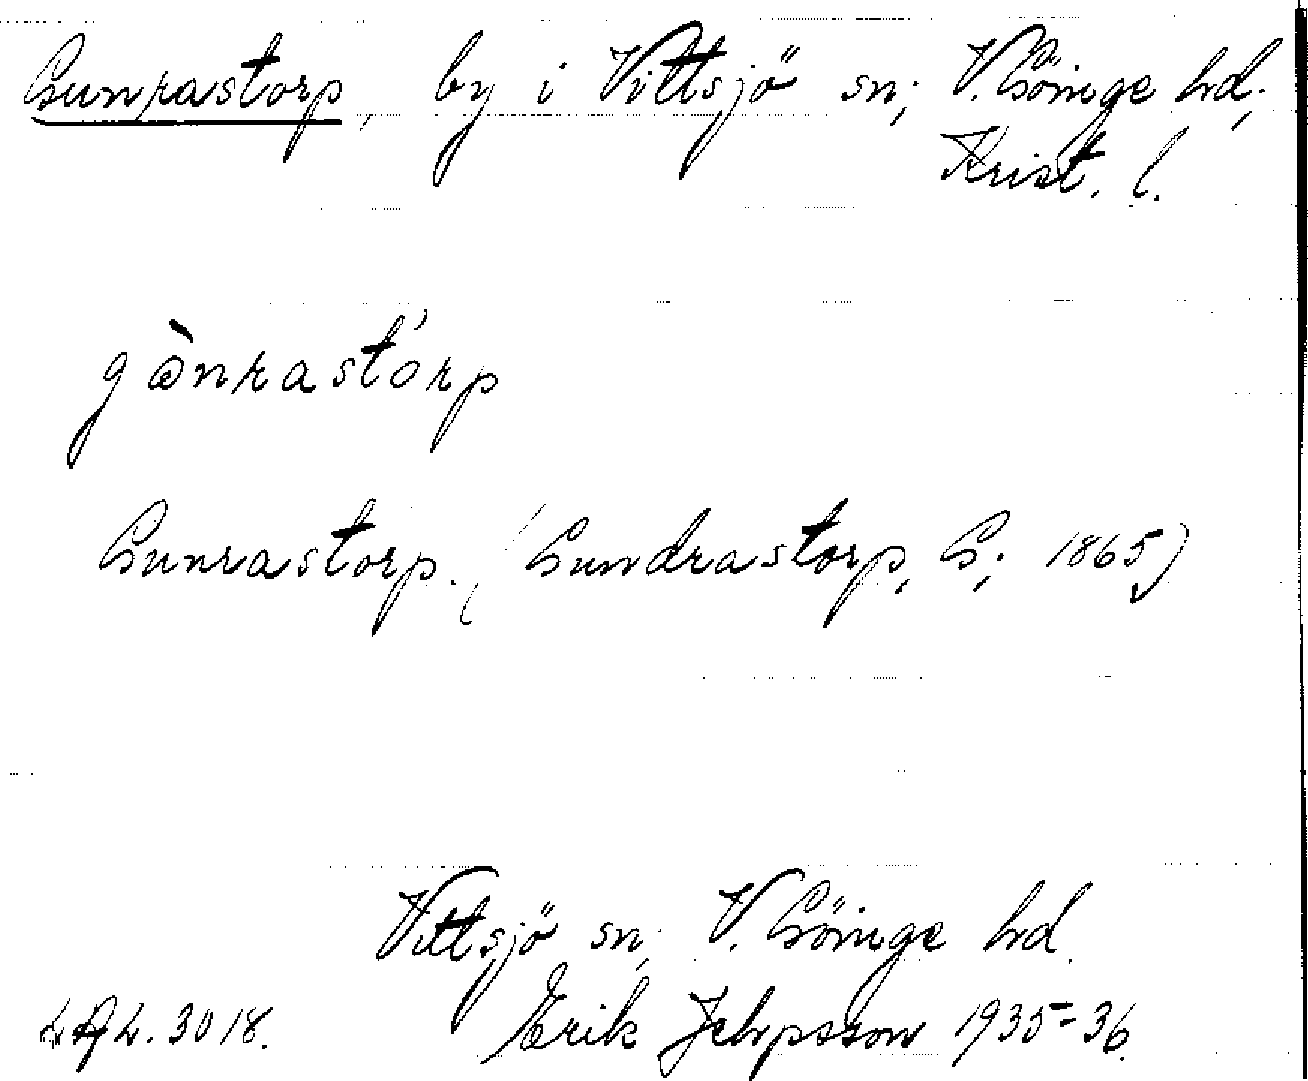 Gunrastorp, by i Vittsjö sn; V. Göinge hd;
Krist. l.
gònrastórp
Gunrastorp. (Gundrastorp, G; 1865)
Vittsjö sn; V. Göinge hd.
LAL. 3018. Erik Jeppsson 1935-36.